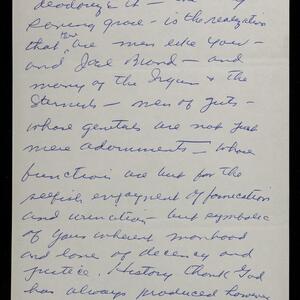 deodorize it — the only
saving grace — is the realization
that there are men like you —
and Joel Brand — and
many of the Irgun & the
Sternists — men of guts —
whose genitals are not just
mere adornments — whose
function are but for the
selfish enjoyment of fornication
and urination — but symbolic
of your inherent manhood
and love of decency and
justice. History thank God
has always produced however